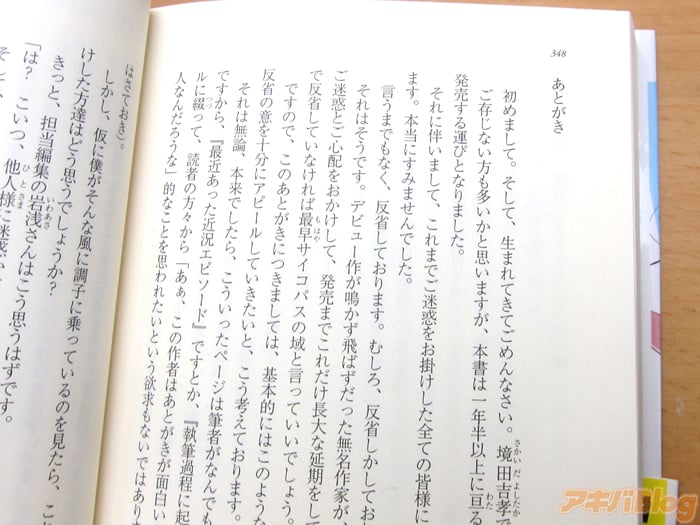 348
あとがき
初めまして。そして、生まれてきてごめんなさい。境田吉孝で
ご存じない方も多いかと思いますが、本書は一年半以上に亘る
発売する運びとなりました。
それに伴いまして、これまでご迷惑をお掛けした全ての皆様に
ます。本当にすみませんでした。
言うまでもなく、反省しております。むしろ、反省しかしてお
それはそうです。デビュー作が鳴かず飛ばずだった無名作家が、
ご迷惑とご心配をおかけして、発売までこれだけ長大な延期をして
で反省していなければ最早サイコパスの域と言っていいでしょう。
ですので、このあとがきにつきましては、基本的にはこのような
反省の意を十分にアピールしていきたいと、こう考えております。
それは無論、本来でしたら、こういったページは筆者がなんでも
ですから、『最近あった近況エピソード』ですとか、『執筆過程に起
ルに綴って、読者の方々から「あぁ、この作者はあとがきが面白い
人なんだろうな」的なことを思われたいという欲求もないではあり
はさておき）。
しかし、仮に僕がそんな風に調子に乗っているのを見たら、こ
けした方達はどう思うでしょうか？
きっと、担当編集の岩浅さんはこう思うはずです。
「は？　こいつ、他人様に迷惑か
アキバBlog